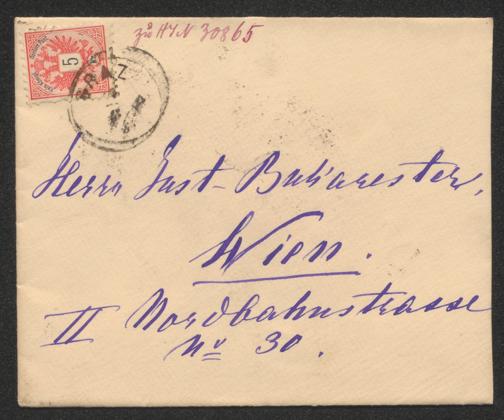 zu H.I.N 30865
5
GRAZ
Herrn Just. Bukarester,
Wien.
II Nordbahnstrasse
No 30.